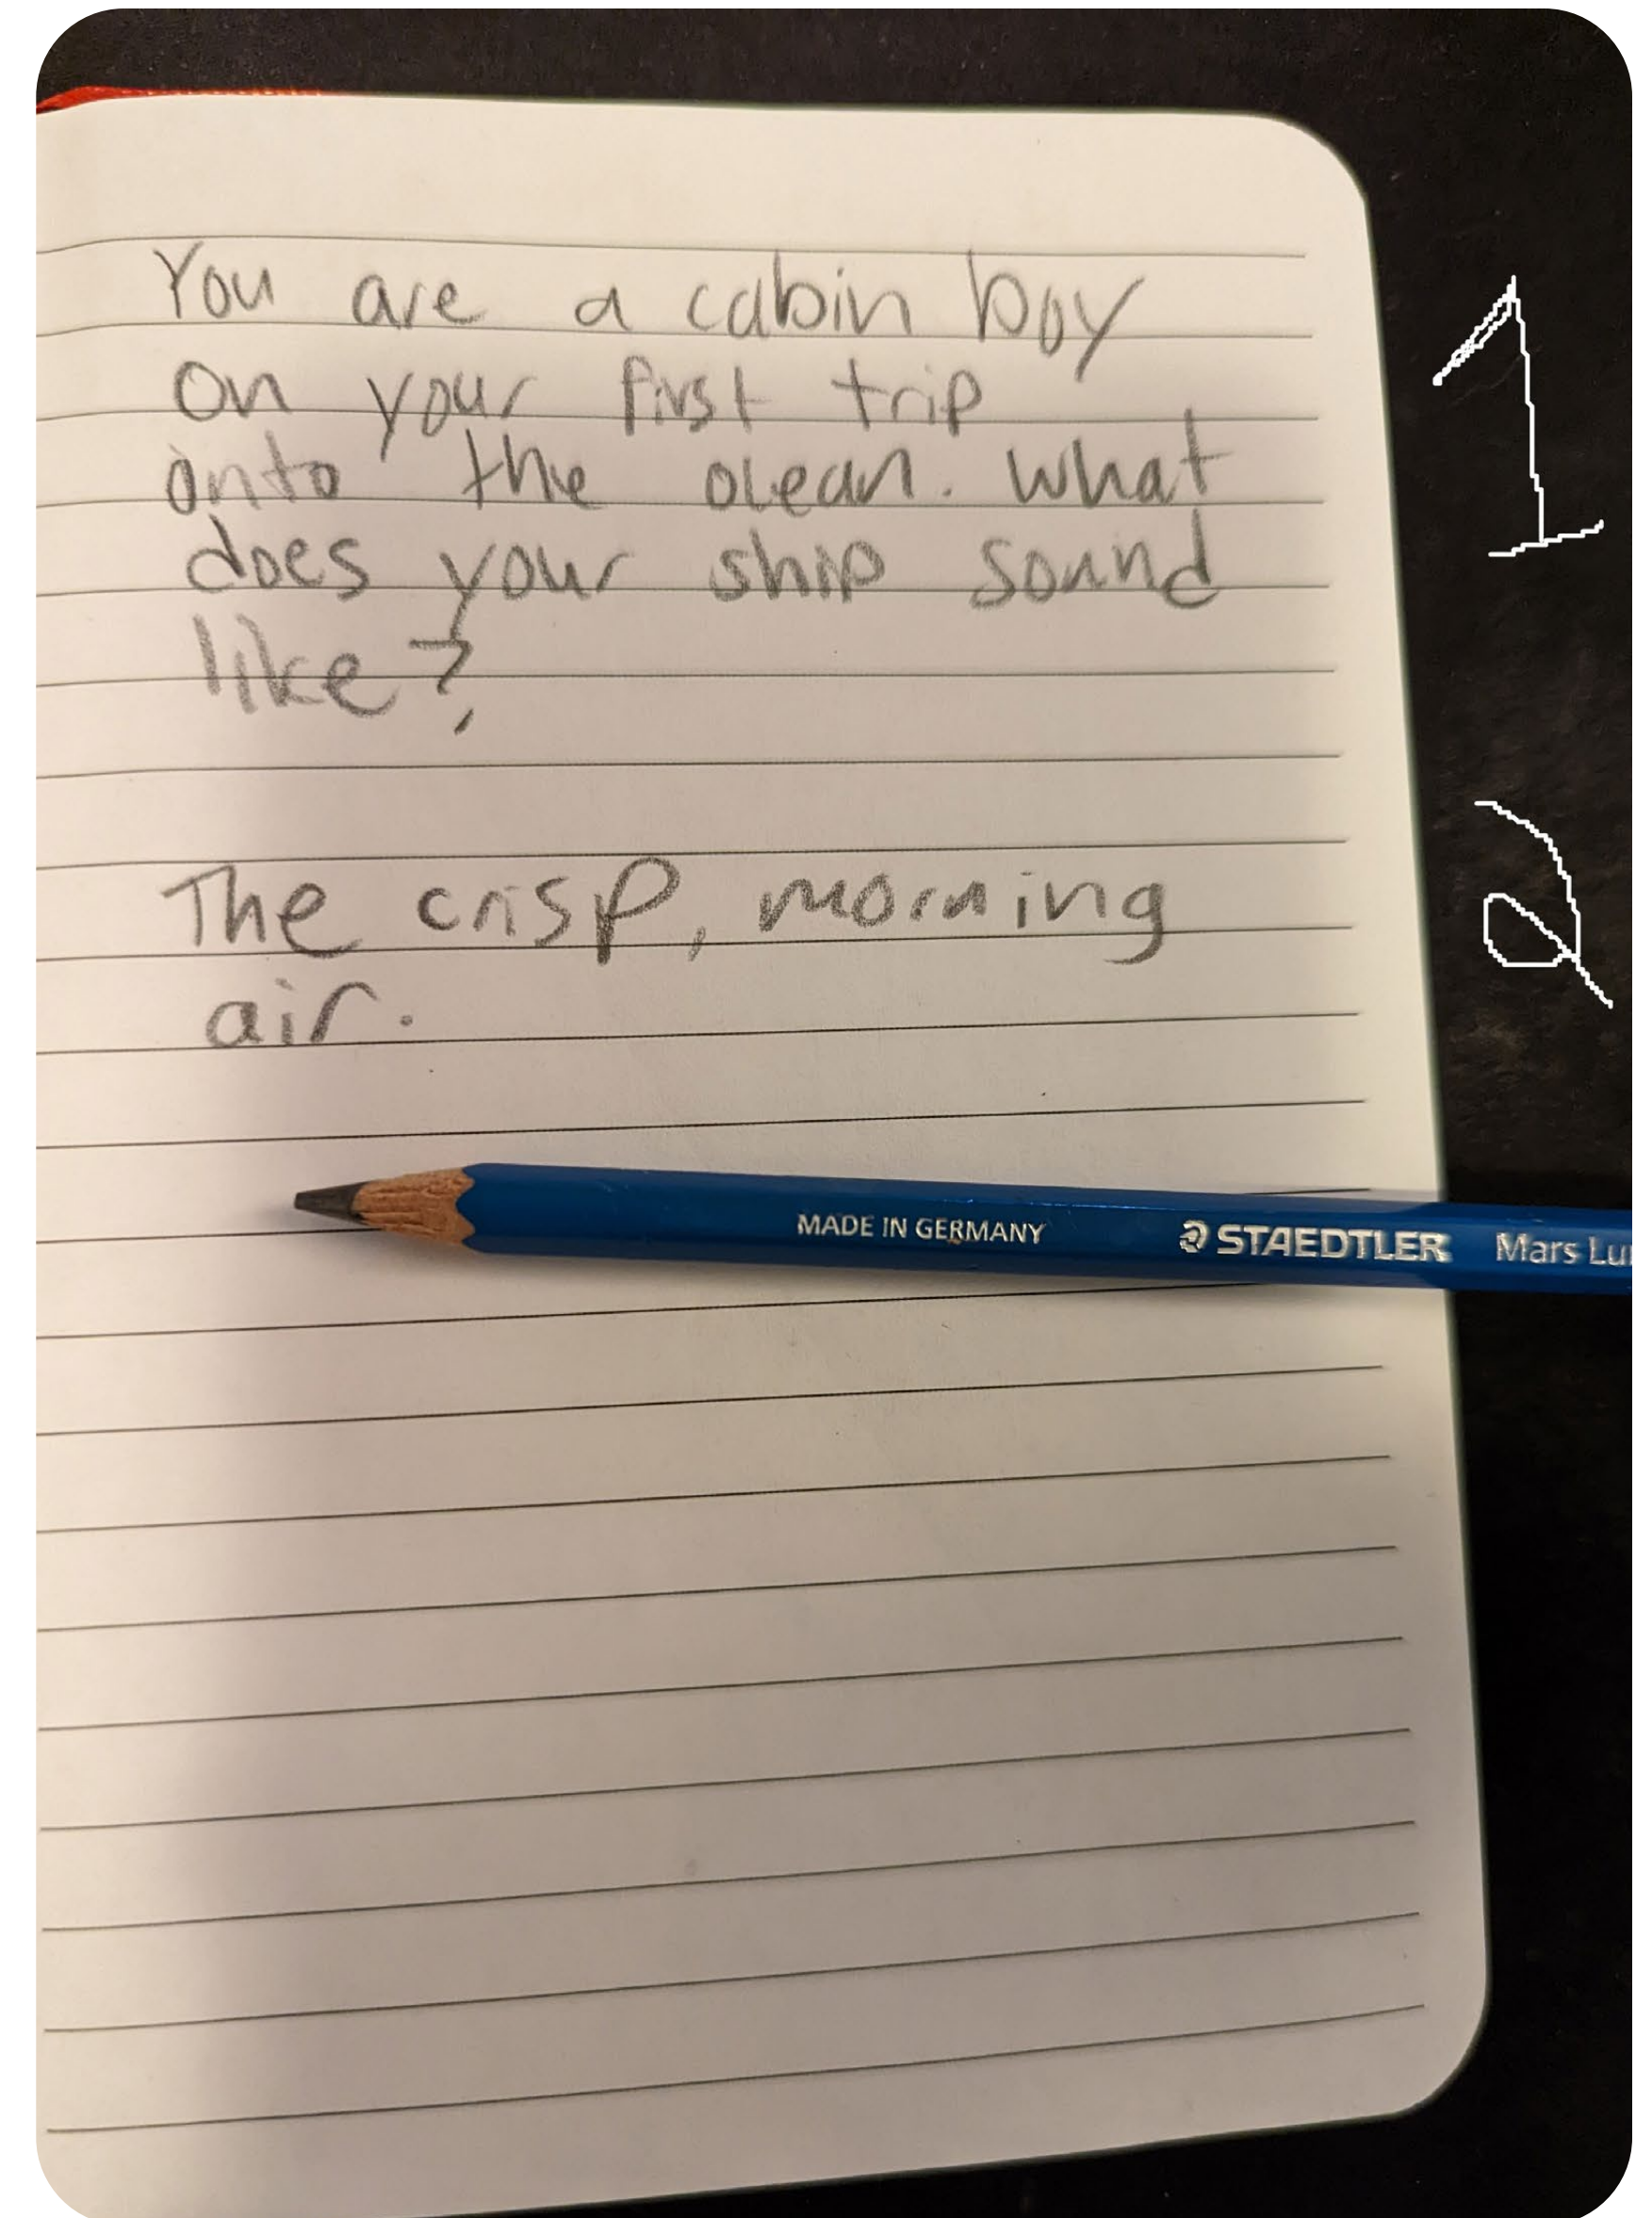 You are a cabin boy
on your first trip
onto the ocean. What
does your ship sound
like?
1
The crisp, morning
air.
2
MADE IN GERMANY STAEDTLER Mars Lu